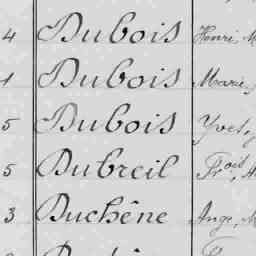 4 Dubois Henri, M
1 Dubois Marie,
5 Dubois Yvet,
5 Dubreil Froit, A
3 Duchêne Ange, M